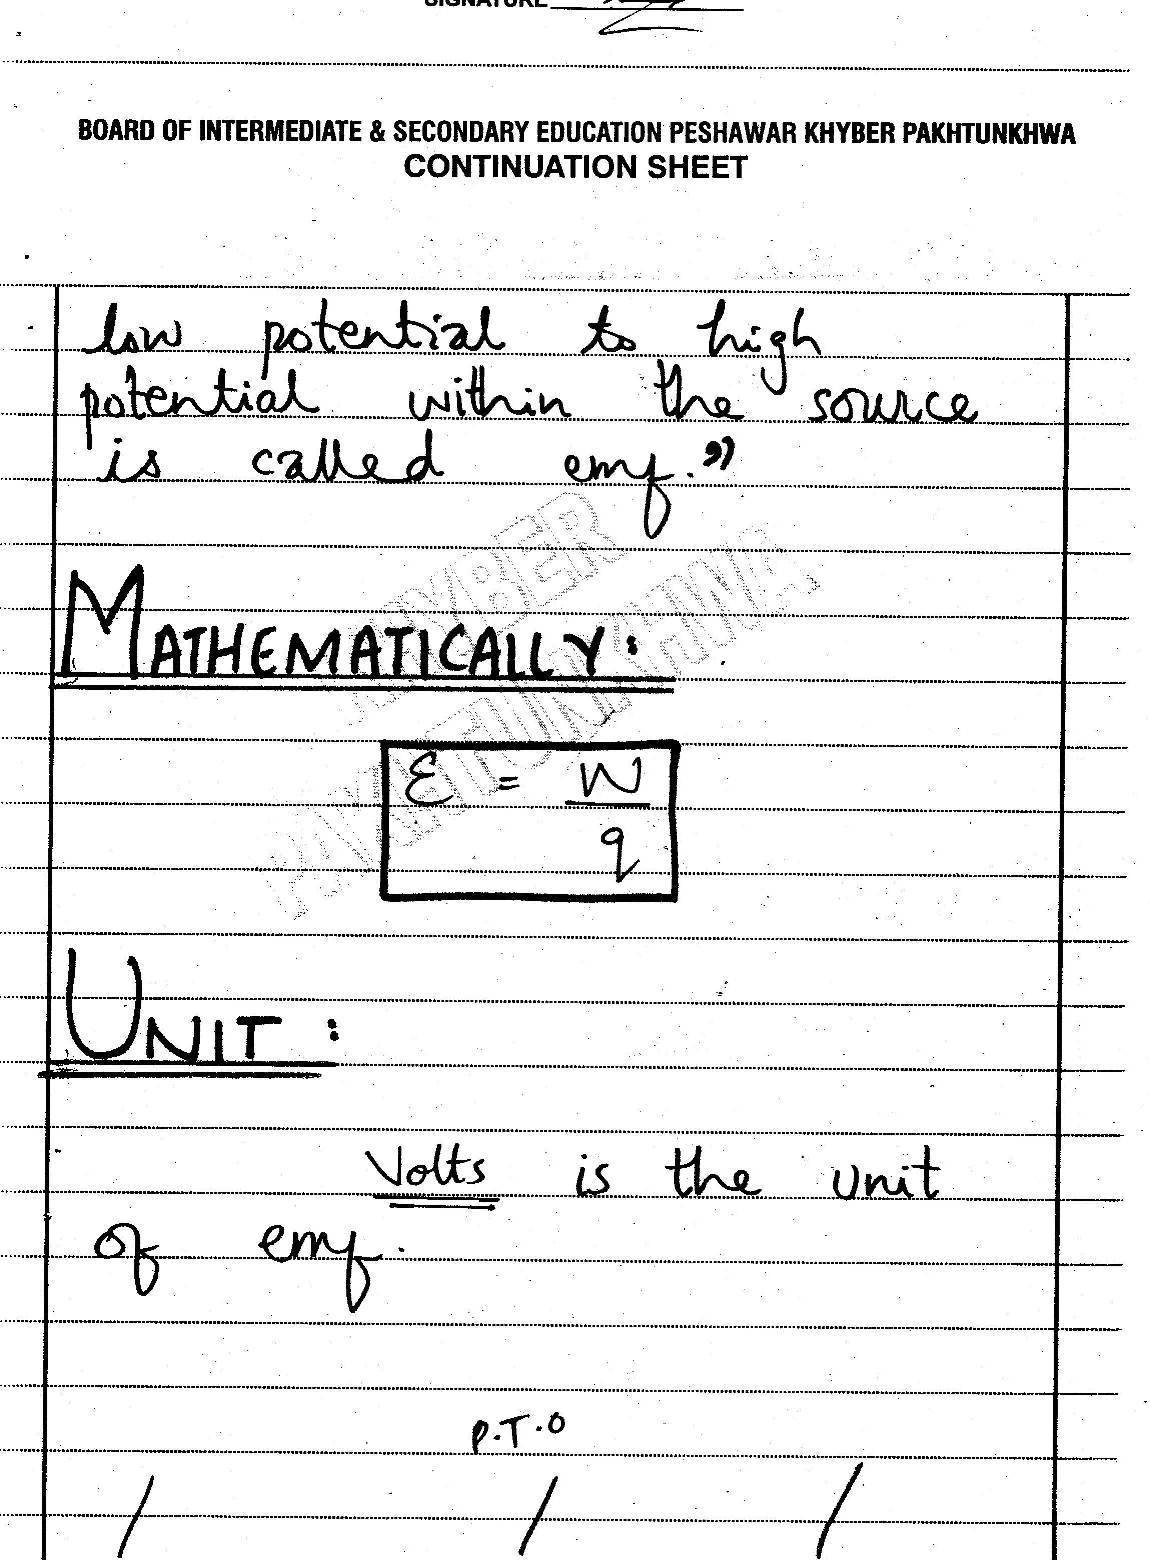 SIGNATURE
BOARD OF INTERMEDIATE & SECONDARY EDUCATION PESHAWAR KHYBER PAKHTUNKHWA
CONTINUATION SHEET
low potential to high
potential within the source
is called emf.”
KHYBER
PAKHTUNKHWA
MATHEMATICALLY:
Ɛ = W
q
UNIT:
Volts is the unit
of emf.
P.T.O